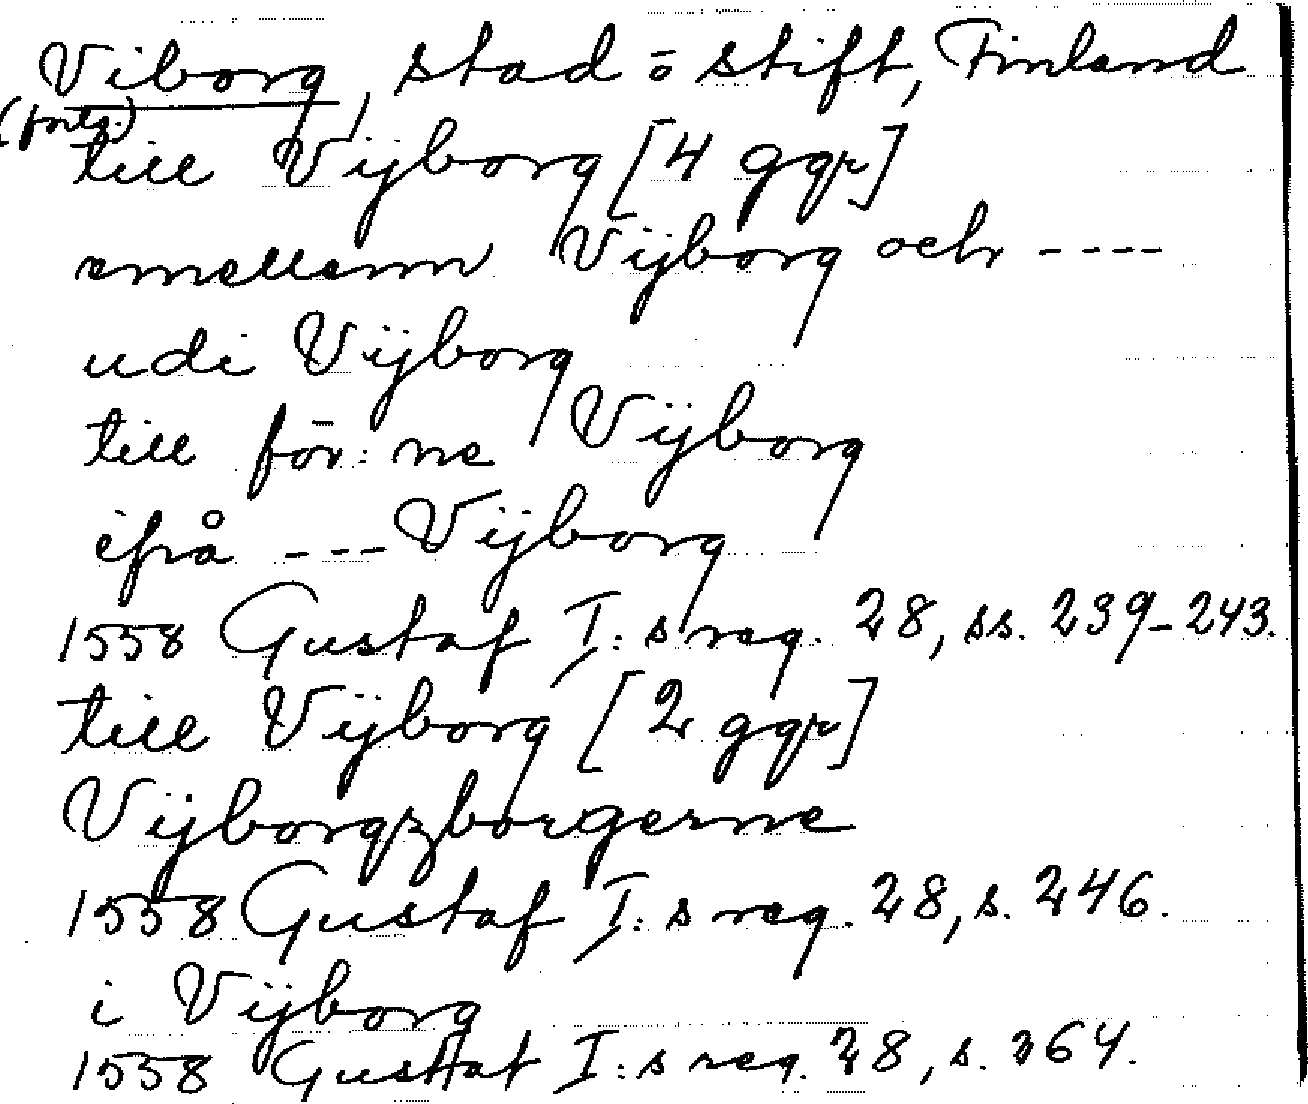 Viborg, stad o stift, Finland
(forts.)
till Vijborg [4 ggr]
emellenn Vijborg och ----
udi Vijborg
till för:ne Vijborg
ifrå --- Vijborg
1558 Gustaf I:s reg. 28, ss. 239-243.
till Vijborg [2 ggr]
Vijborgzborgerne
1558 Gustaf I:s reg. 28, s. 246.
i Vijborg
1558 Gustaf I:s reg. 28, s. 264.